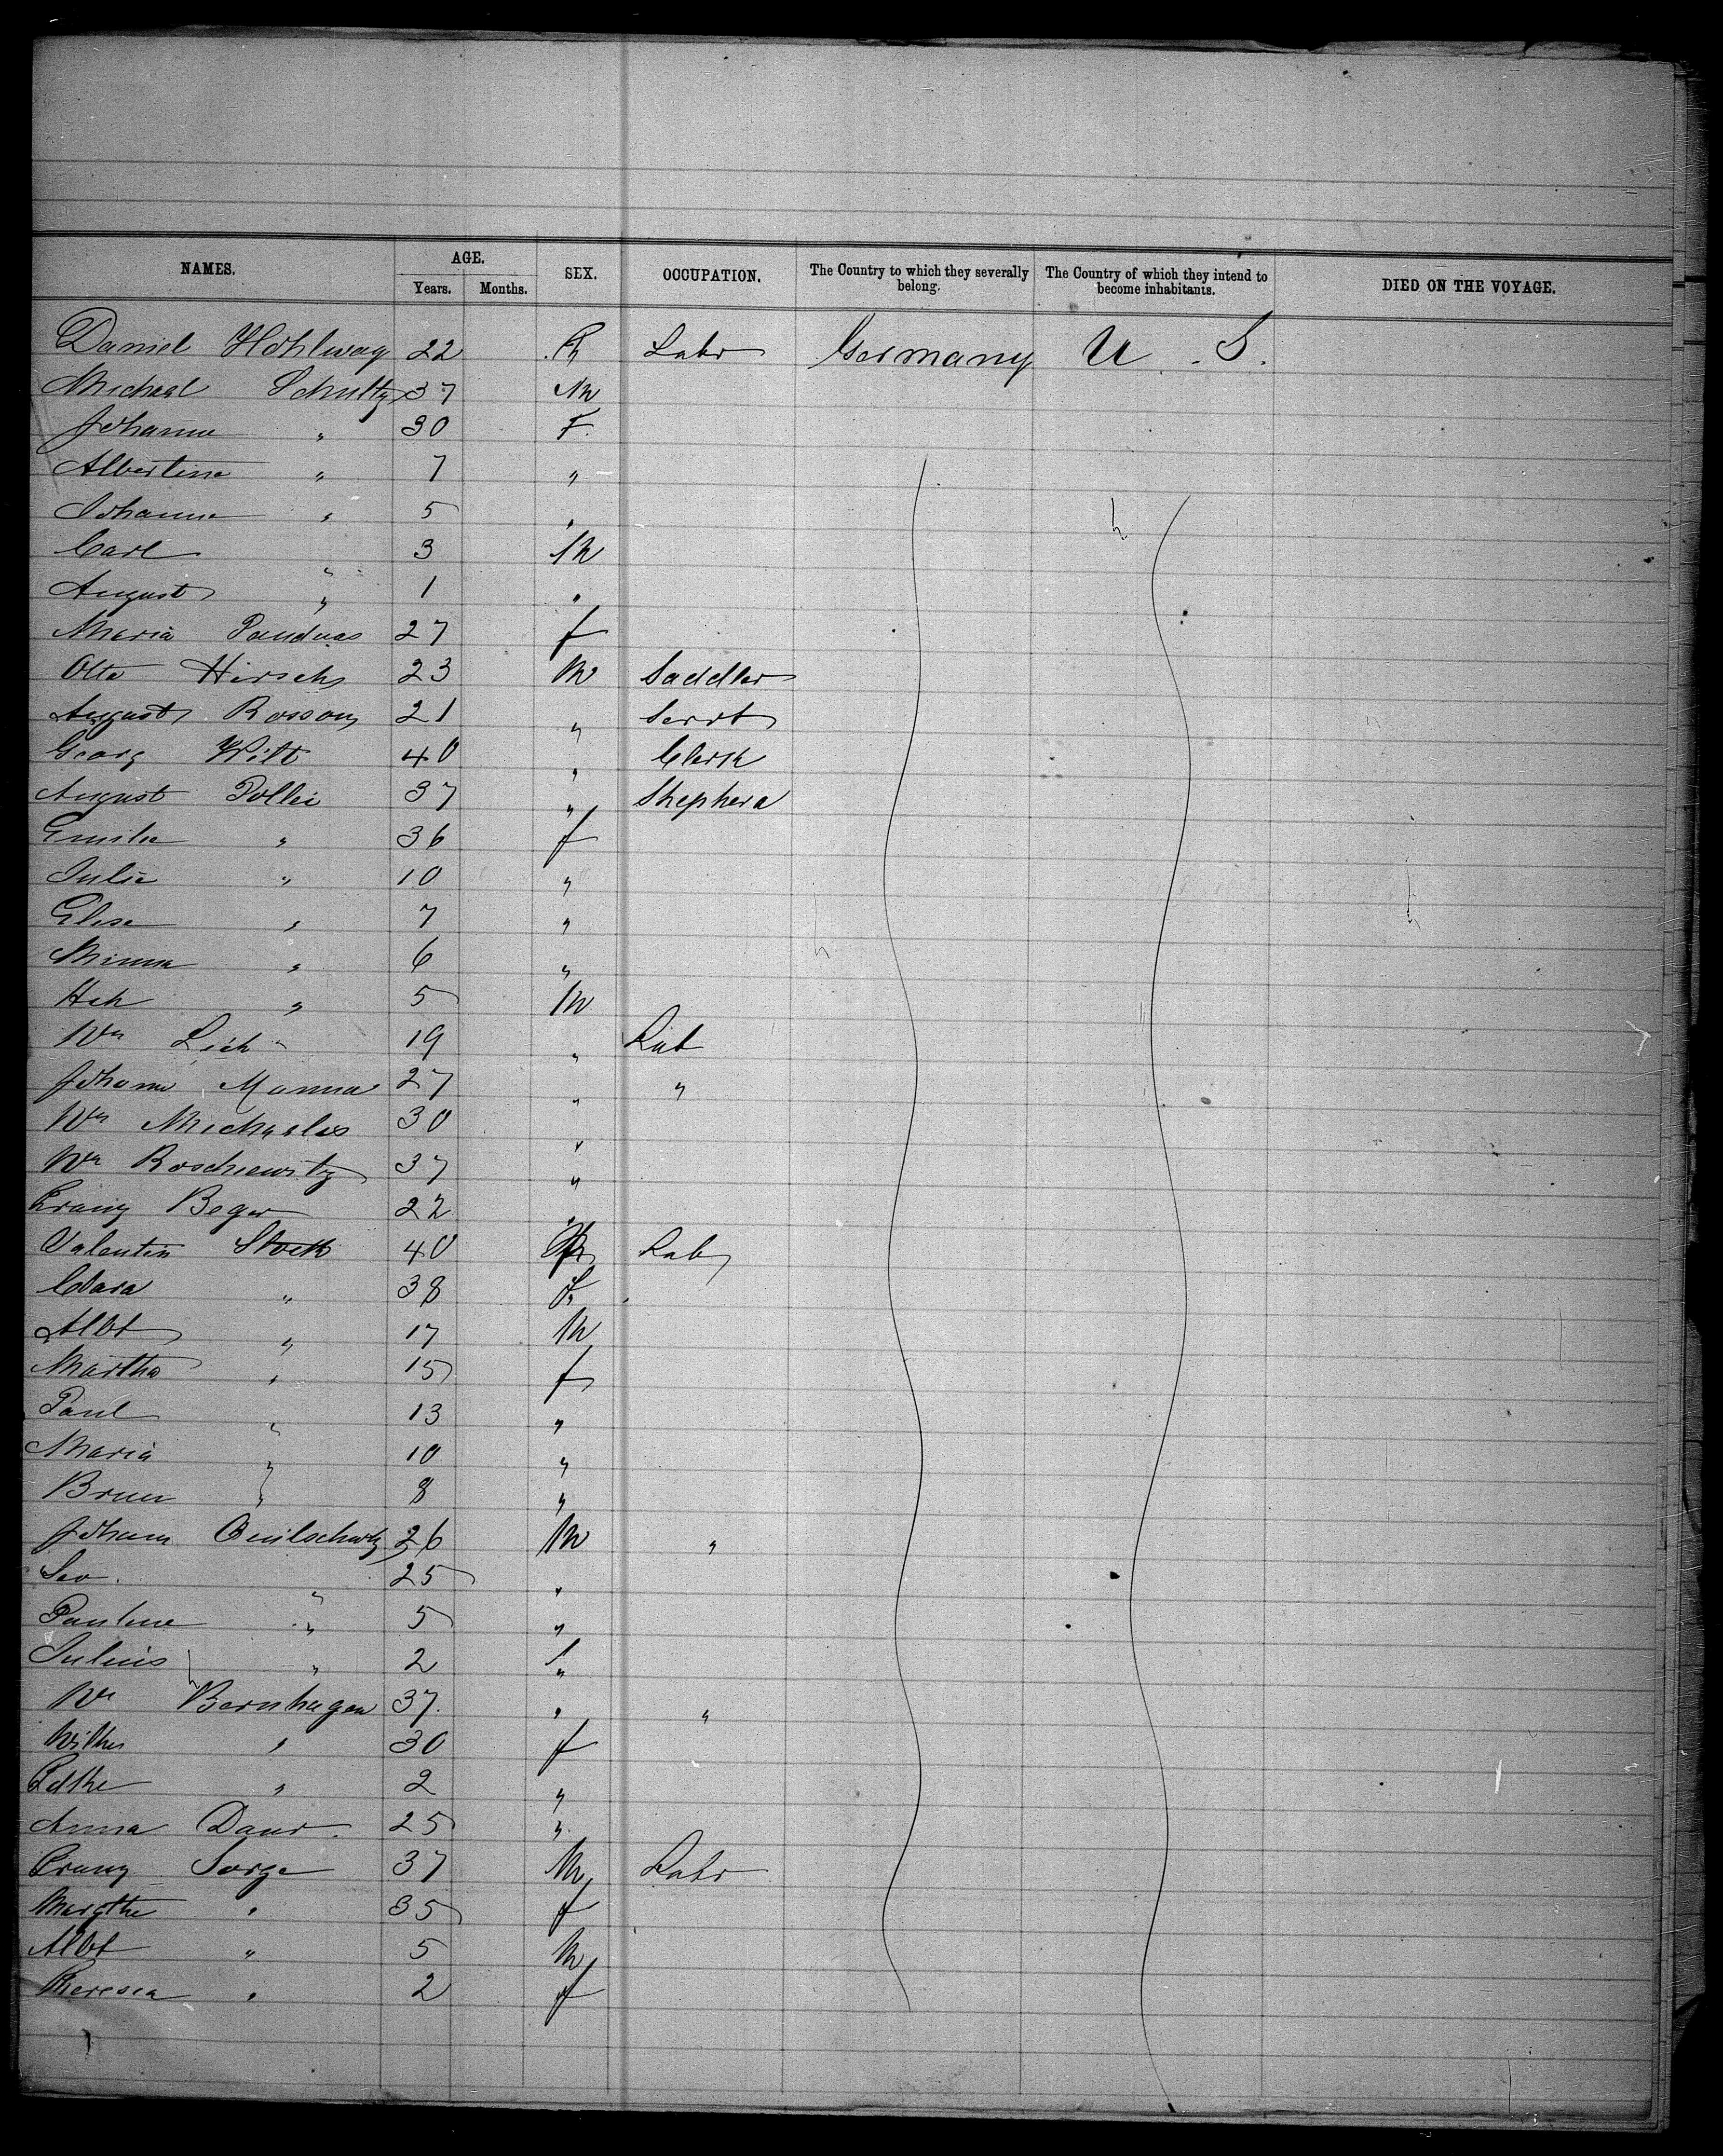 NAMES. AGE. SEX. OCCUPATION. The Country to which they severally belong. The Country of which they intend to become inhabitants. DIED ON THE VOYAGE.
Years. Months.
Daniel Hohlweg 22 Labr Germany U.S.
Michael Schultz 37 M
Johanna " 30 F.
Albertine " 7 "
Johanna " 5 "
Carl " 3 M
August " 1 "
Maria 27 f
Otto Hirsch 23 M Saddler
August Rosson 21 " Servt
Georg Wilt 40 " Clerk
August Pollei 37 " Shepherd
Emilie " 36 f
Julie " 10 "
Elise " 7 "
Minna " 6 "
Hch " 5 M
Wm Leich 19 " Lab
Johann Manna 27 " "
Wm Michaelis 30 "
Wm Roschewitz 37 "
Franz Beger 22 "
Valentin Stock 40 Lab
Clara " 38 f
Albt " 17 M
Martha " 15 f
Paul " 13 "
Maria " 10 "
Brun " 8 "
Johann 26 M "
Leo. " 25 "
Pauline " 5 "
Julius " 2 "
Wm Bernhagen 37. " "
Wilhe " 30 f
Edthe " 2 "
Anna Daur. 25 "
Franz Sorge 37 M Labr
Margthe " 35 f
Albt " 5 M
Theresea " 2 f